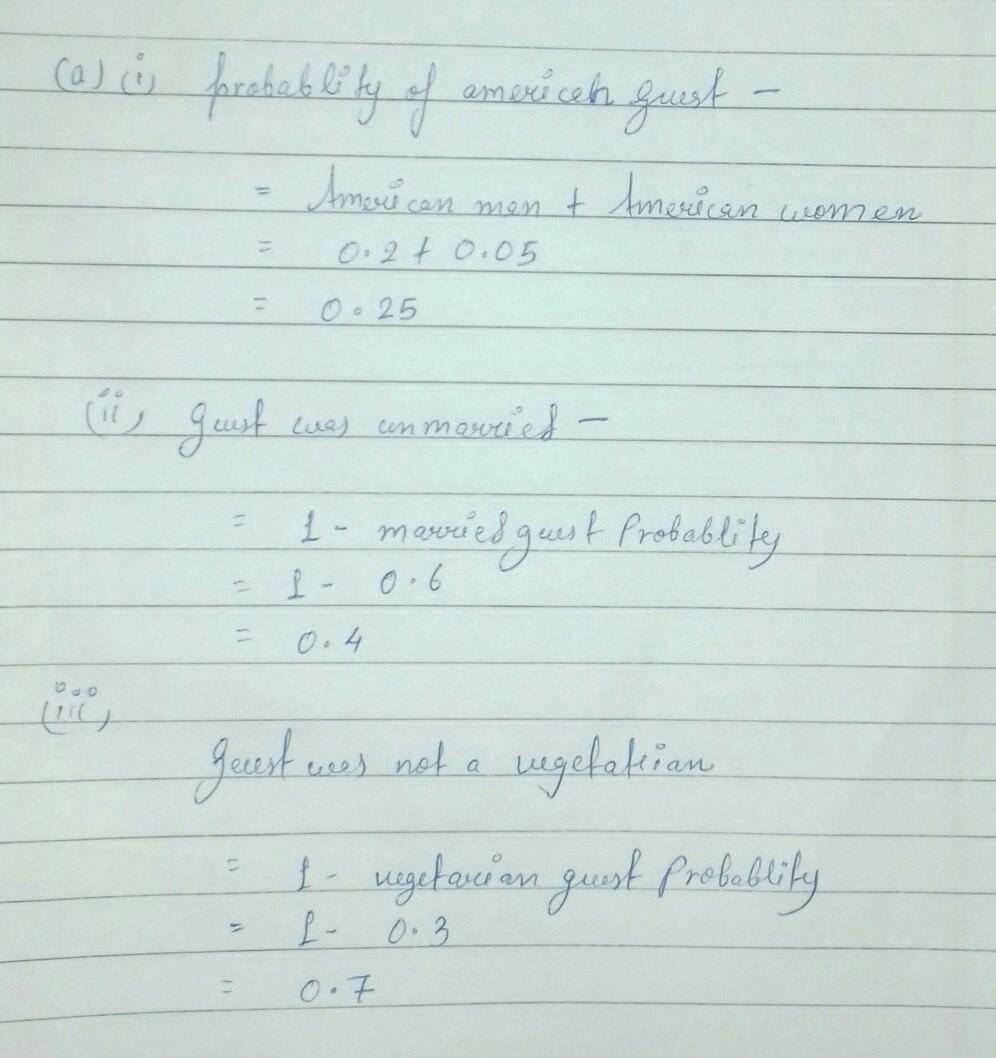 (a) (i) probablity of american guest -
= American men + American women
= 0.2 + 0.05
= 0.25
(ii) guest was unmarried -
= 1 - married guest Probablity
= 1 - 0.6
= 0.4
(iii)
guest was not a vegetarian
= 1 - vegetarian guest Probablity
= 1 - 0.3
= 0.7